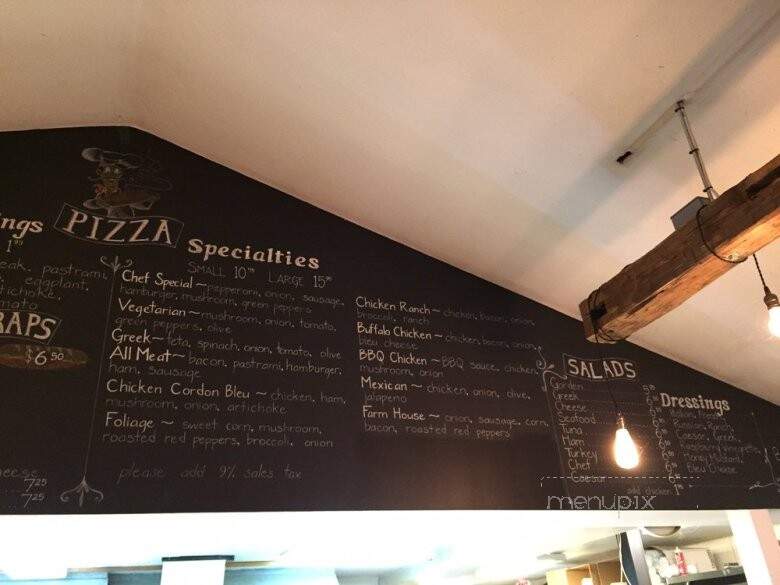 ngs
1⁹⁹
eak, pastrami,
eggplant,
artichoke,
omato
RAPS
$6.50
cheese
7.25
7.25
PIZZA
Specialties
SMALL 10⁹⁹ LARGE 15⁹⁹
Chef Special ~ pepperoni, onion, sausage,
hamburger, mushroom, green peppers
Vegetarian ~ mushroom, onion, tomato,
green peppers, olive
Greek ~ feta, spinach, onion, tomato, olive
All Meat ~ bacon, pastrami, hamburger,
ham, sausage
Chicken Cordon Bleu ~ chicken, ham,
mushroom, onion, artichoke
Foliage ~ sweet corn, mushroom,
roasted red peppers, broccoli, onion
please add 9% sales tax
Chicken Ranch ~ chicken, bacon, onion,
broccoli, ranch
Buffalo Chicken ~ chicken, bacon, onion,
bleu cheese
BBQ Chicken ~ BBQ sauce, chicken,
mushroom, onion
Mexican ~ chicken, onion, olive,
jalapeno
Farm House ~ onion, sausage, corn,
bacon, roasted red peppers
SALADS
Garden
Greek
Cheese
Seafood
Tuna
Ham
Turkey
Chef
Caesar
add chicken
Dressings
Italian, French,
Russian, Ranch,
Caesar, Greek,
Raspberry Vinaigrette,
Honey Mustard,
Bleu Cheese
menupix